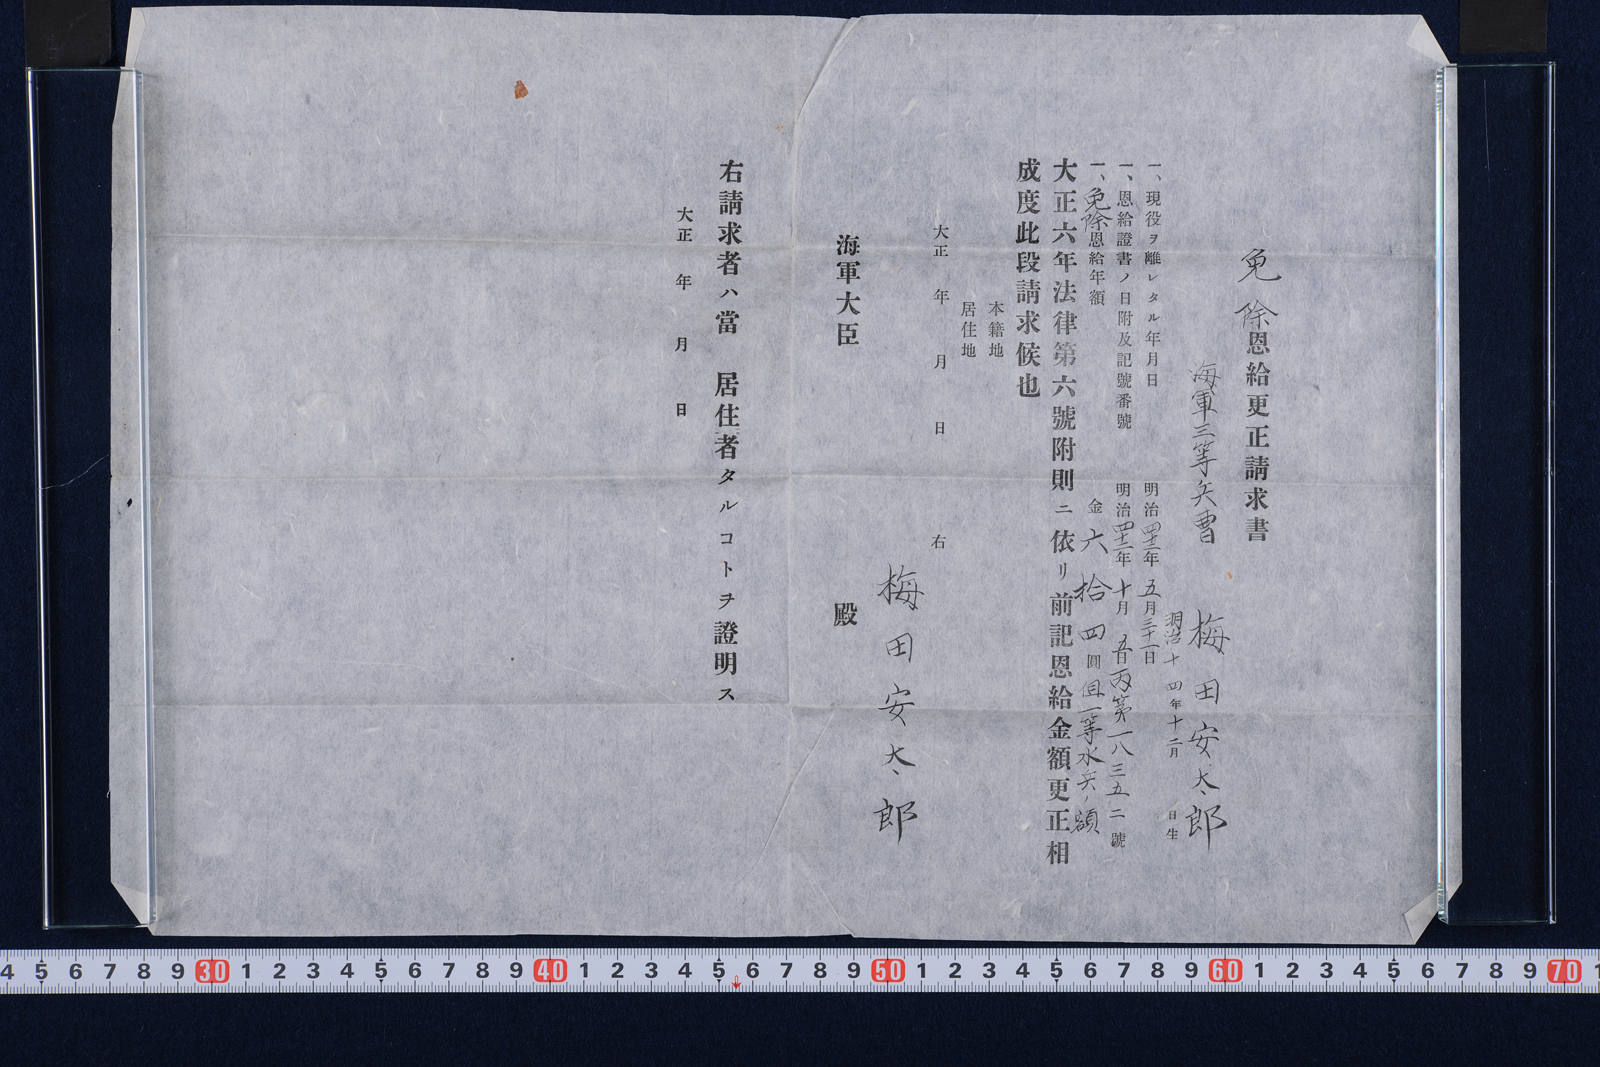 免除恩給更正請求書
海軍三等兵曹 梅田安太郎
明治十四年十二月 日生
一、現役ヲ離レタル年月日 明治四十三年五月三十一日
一、恩給證書ノ日附及記號番號 明治四十三年十月五日丙第一八三五二號
一、免除恩給年額 金六拾四圓 但一等水兵ノ額
大正六年法律第六號附則ニ依リ前記恩給金額更正相
成度此段請求候也
本籍地
居住地
大正 年 月 日 右
梅田安太郎
海軍大臣 殿
右請求者ハ當 居住者タルコトヲ證明ス
大正 年 月 日
4 5 6 7 8 9 30 1 2 3 4 5 6 7 8 9 40 1 2 3 4 5 6 7 8 9 50 1 2 3 4 5 6 7 8 9 60 1 2 3 4 5 6 7 8 9 70 1